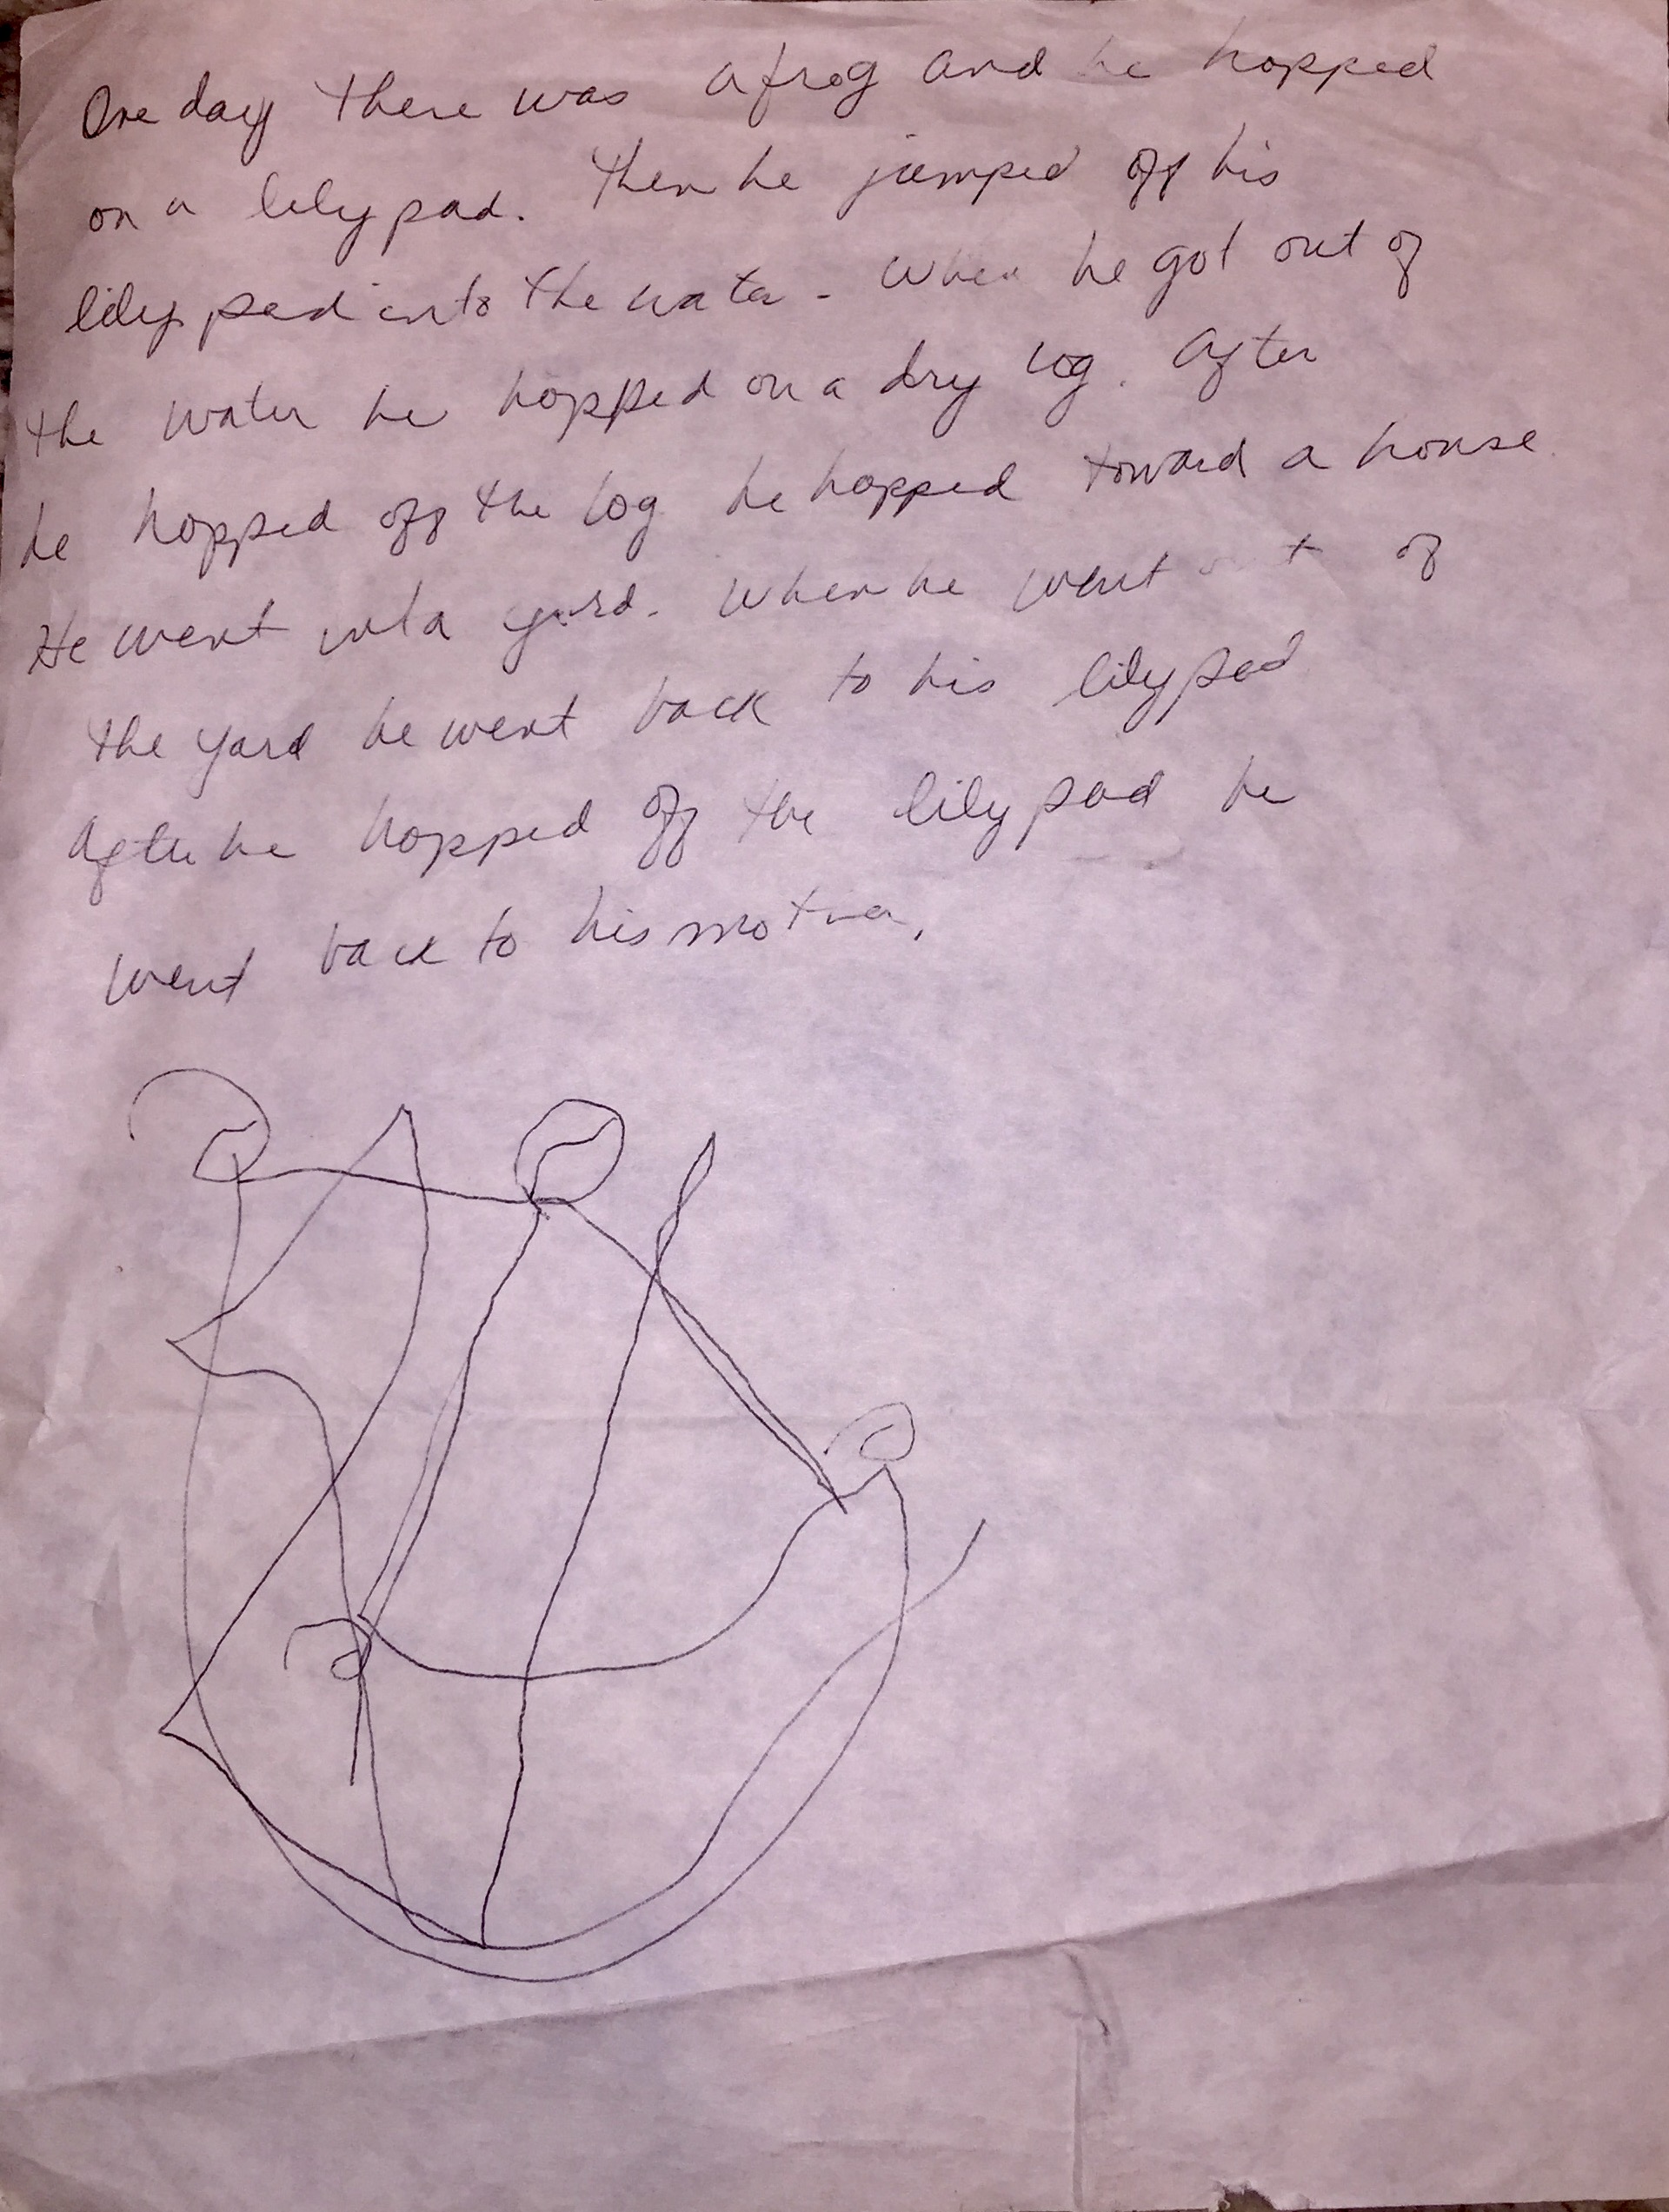 One day there was a frog and he hopped
on a lily pad. Then he jumped off his
lily pad into the water. When he got out of
the water he hopped on a dry log. After
he hopped off the log he hopped toward a house.
He went into a yard. When he went out of
the yard he went back to his lily pad
After he hopped off the lily pad he
went back to his mother.